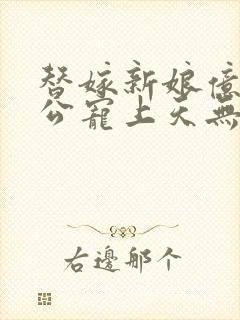 替嫁新娘億
公寵上天無
右邊那个